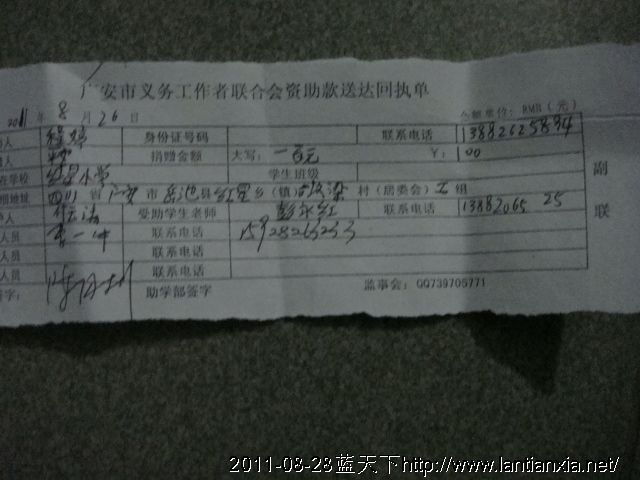 广安市义务工作者联合会资助款送达回执单
2011 年 8 月 26 日 金额单位：RMB（元）
人 身份证号码 联系电话 13882625894
捐赠金额 大写：一百元 ￥：100
在学校 红星小学 学生班级
地址 四川 省 广安 市 岳池 县 红星 乡（镇） 村（居委会） 组
人 受助学生老师 彭永红 联系电话 13882065 25
人员 李一中 联系电话 15928263253
人员 联系电话
人员 联系电话
签字： 助学部签字 监事会：QQ739705771
副联
2011-08-28蓝天下http://www.lantianxia.net/